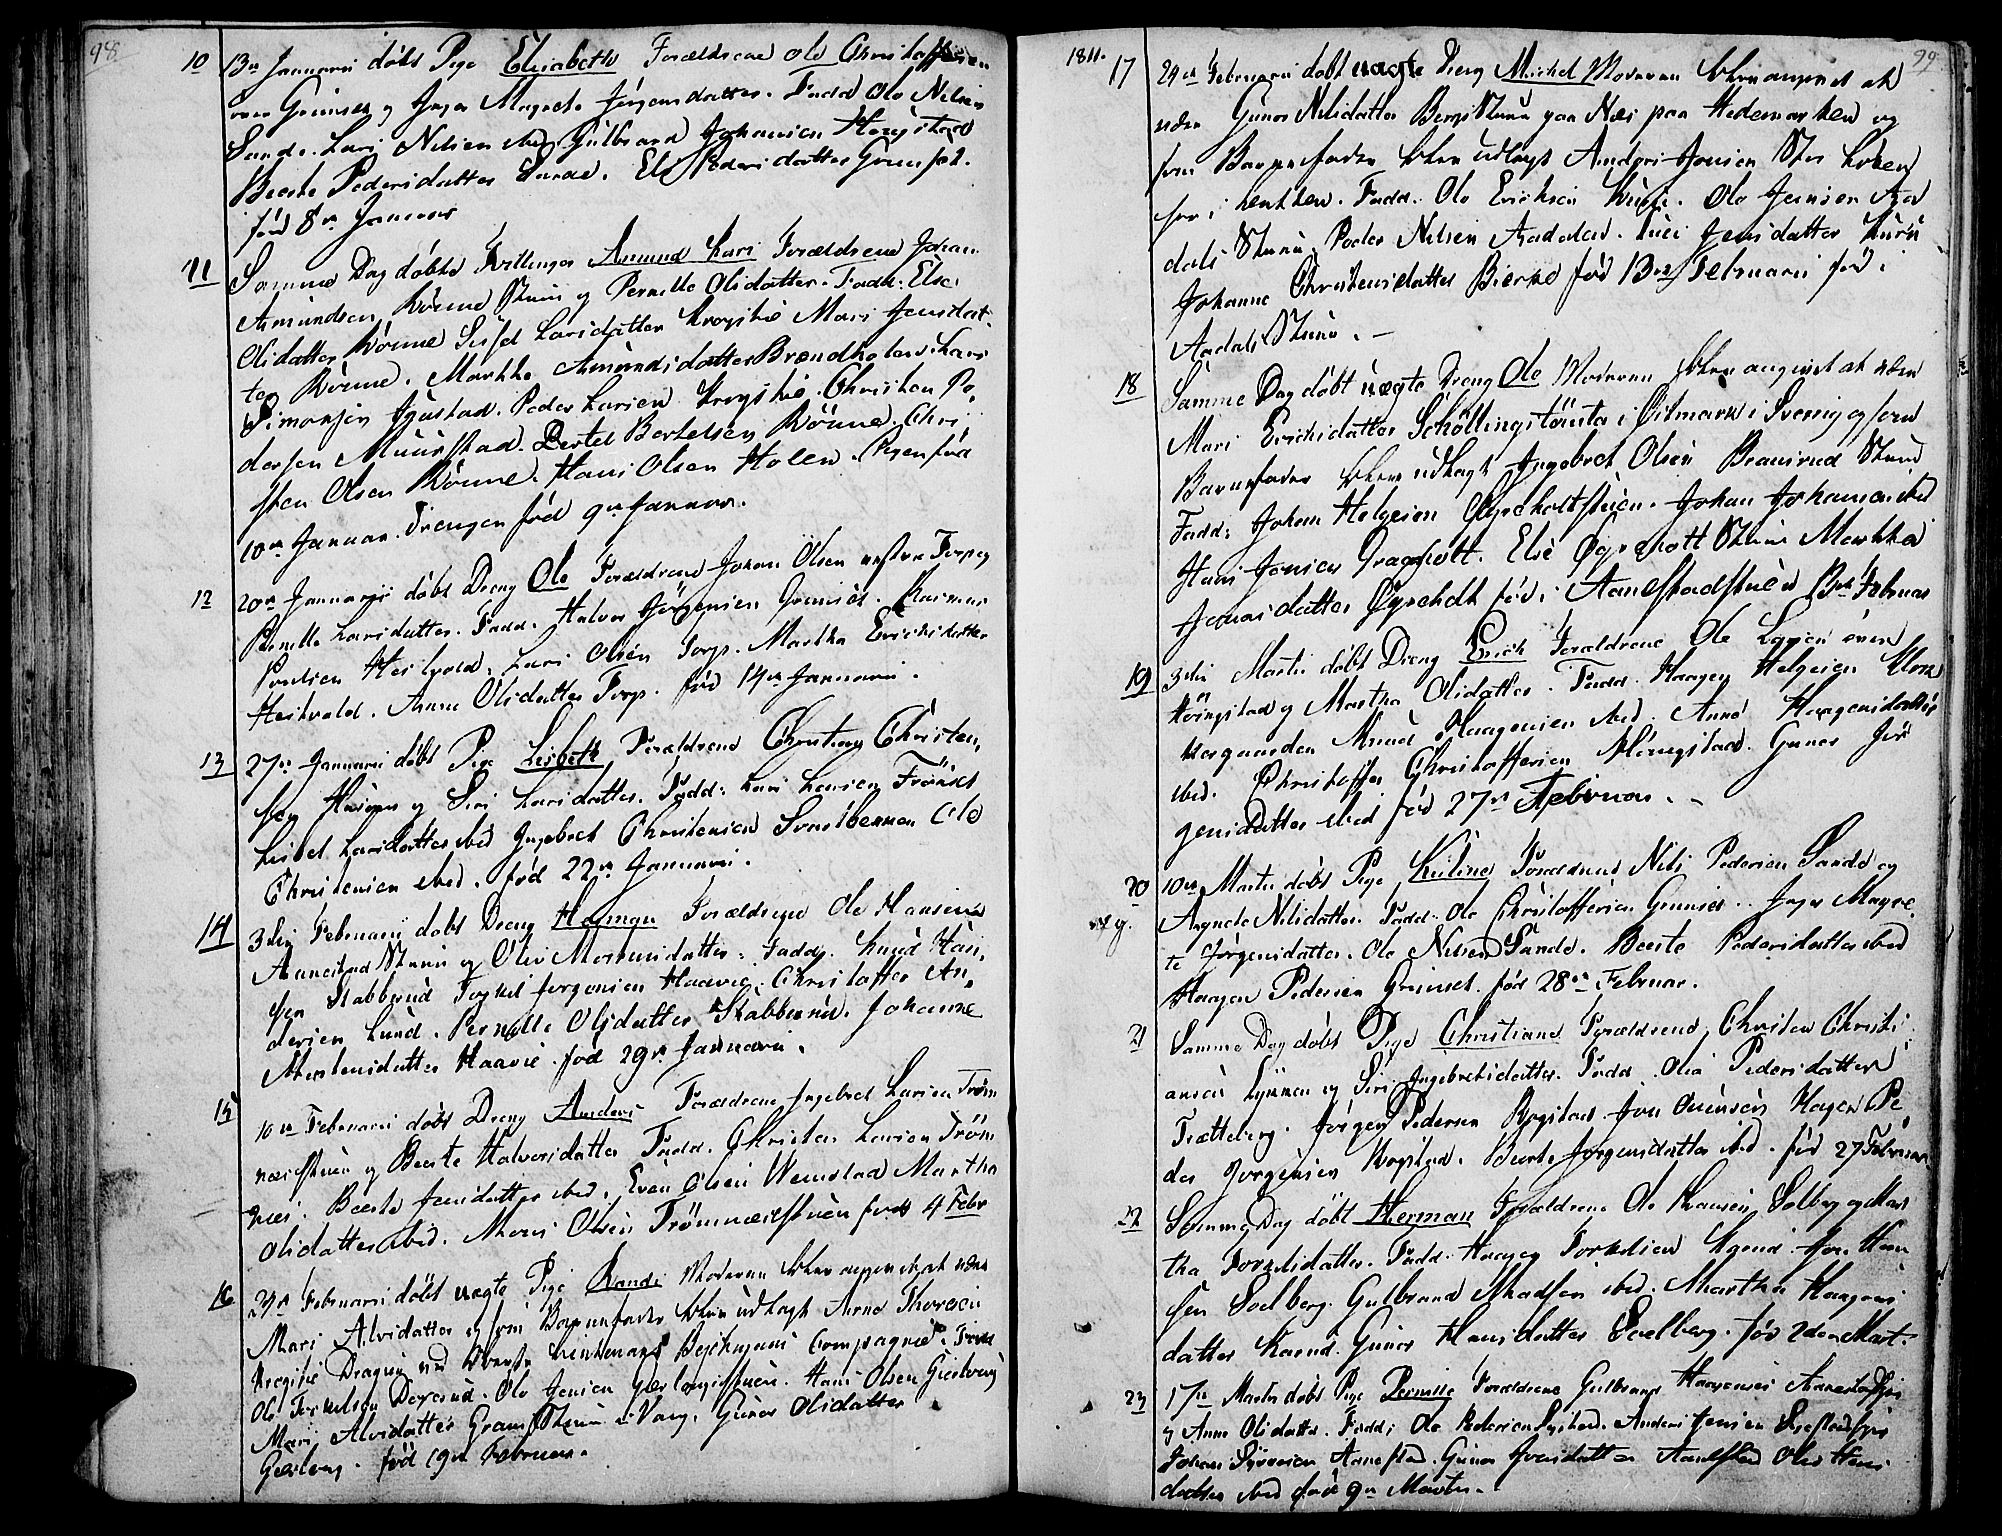 98
10 13de Januarii døbt Pige Elisabeth Forældrene Ole Christoffersen
Grimset og Inger Magrete Jørgensdatter. Fadd. Ole Nilsen
Sande. Lars Nilsen ibid. Gulbrand Johansen Hongstad
Beeste Pedersdatter Sande. Else Pedersdatter Grimset.
fød 8de Januar
11 Samme Dag døbte Tvillinger Amund Kari Forældrene Johan
Amundsen Rönne Stuen og Pernille Olsdatter. Fadd: Else
Olsdatter Rönne Sissel Larsdatter Krogstie Mari Jensdat-
ter Rönne. Marthe Amundsdatter Brændholen. Lars
Simonsen Ajustad. Peder Larsen Krogstie. Christen Pe-
dersen Muurstad. Bertel Bertelsen Rönne. Chri-
sten Olsen Rönne. Hans Olsen Holen. Pigen fød
10de Januar. Drengen fød 9de Januar.
12 20de Januarii døbt Dreng Ole Forældrene Johan Olsen Torp og
Pernille Larsdatter. Fadd. Halvor Jörgensen Grimset. Rasmus
Poulsen Hestvold. Lars Olsen Torp. Martha Erichsdatter
Hestvold. Anne Olsdatter Torp. fød 14de Januarii.
13 27de Januarii døbt Pige Lisbeth Forældrene Christen Christen-
sen og Siri Larsdatter. Fadd: Lars Larsen Frönset
Lisbet Larsdatter ibid Ingebret Christensen Ole
Christensen ibid. fød 22de Januarii.
14 3die Februarii døbt Dreng Herman Forældrene Ole Hansen
Aanestad Stuen og Olea Mortensdatter. Fadd. Knud Han-
sen Stabberud Torkel Jørgensen Haavie. Christoffer An-
dersen Lund. Pernille Olsdatter Stabberud. Johanne
Mortensdatter Haavie. fød 29de Januarii.
15 10de Februarii døbt Dreng Anders Forældrene Ingebret Larsen Tröm-
næsstuen og Beeste Halvorsdatter Fadd. Christen Larsen Tröm-
næs. Beeste Jensdatter ibid. Even Olsen Wemstad Martha
Olsdatter ibid. Mons Olsen Trömnæsstuen fød 4 Febr
16 24de Februarii døbt uægte Pige Randi Moderen blev angivet at være
Mari Alvsdatter og som Barnefader blev udlagt Arne Thoresen
Dragun ved Compagnie. Fadd.
Ole Torkelsen Dererud. Ole Jensen Gierlougstuen. Hans Olsen Gierloug
Mari Alvsdatter Gram Stuen i Vang. Guner Olsdatter
Gierloug. fød 19de Februar.
1811.
99
17 24de Februarii døbt uægte Dreng Michel Moderen blev angivet at
være Guner Nilsdatter Bergs Stuen paa Næs paa Hedemarken og
som Barnefader blev udlagt Anders Jensen Stor Loken
fra i Leuten. Fadd. Ole Erichsen Ruse. Ole Jensen Aa-
dals Stuen. Peder Nilsen Aadalen. Siri Jensdatter Ruse
Johanne Christensdatter Bierke fød 13de Februarii fød i
Aadals Stuen.
18 Samme Dag døbt uægte Dreng Ole Moderen blev angivet at være
Mari Erichsdatter Schöllingstömta i Östmark i Sverrig og som
Barnefader blev udlagt Ingebret Olsen Stuen
Fadd: Johan Helgesen Öyreholtstuen. Johan Johansen ibid
Hans Jonsen Dragholt. Else Öyreholt Stuen Martha
Jonasdatter Öyreholt fød i Aanestadstuen 13de Februar
19 3die Martii døbt Dreng Erich Forældrene Ole Larsen övre
Höingstad og Martha Olsdatter. Fadd. Haagen Helgesen Klok-
kergaarden Knud Haagensen ibid. Anne Haagensdatter
ibid. Christoffer Christoffersen Höingstad. Guner Jör-
gensdatter ibid fød 27de Februar.
20 10de Martii døbt Pige Kiline Forældrene Nils Pedersen Sande og
Agnete Nilsdatter. Fadd. Ole Christoffersen Grimset. Inger Magre-
te Jörgensdatter. Ole Nilsen Sande. Beeste Pedersdatter ibid
Haagen Pedersen Grimset. fød 28de Februar.
21 Samme Dag døbt Pige Christiane Forældrene Christen Christi-
ansen Lynnen og Siri Ingebretsdatter. Fadd. Olea Pedersdatter
Trætteberg. Jörgen Pedersen Rogstad. Jon Hagen Pe-
der Jorgensen Rogstad. Berte Jorgensdatter ibid. fød 27 Februar
22 Samme Dag døbt Herman Forældrene Ole Hansen Solberg og Mar-
tha Torkelsdatter. Fadd. Haagen Torkelsen Skjend. Jon Han-
sen Soelberg. Gulbrand Madsen ibid. Martha Haagens-
datter Guner Hansdatter Soelberg. fød 2den Mart.
23 17de Martii døbt Pige Pernille Forældrene Gulbrand Haagensen
og Anne Olsdatter. Fadd: Ole Pedersen Anders Jensen
Johan Aanestad. Guner Jonsdatter Aanestad Olea Hans-
datter ibid fød 9de Martii.